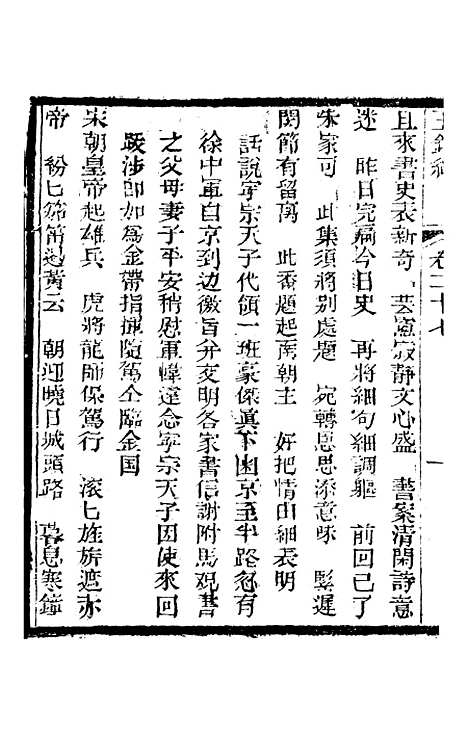 玉釧緣 卷二十七 一
且來書史表新奇 芸窻寂靜文心盛 書案清閑詩意
迷 昨日完編今日史 再將細句細調軀 前回已了
家可 此集須將別處題 宛轉思思添意味 遲
関節有留离 此番題起南朝主 好把情由細表明
話說寜宗天子代領一班豪傑眞下幽京至半路忽有
徐中軍自京到边徽旨并交明各家書信謝附馬覌書
之父母妻子平安稍慰軍幃違念寜宗天子因使來回
跋涉即加為金帶指揮隨駕仝臨金国
宋朝皇帝起雄兵 虎將龍師保駕行 滚匕旌旂遮赤
帝 紛匕 黄云 朝迎曉日城頭路 暮息寒鐘